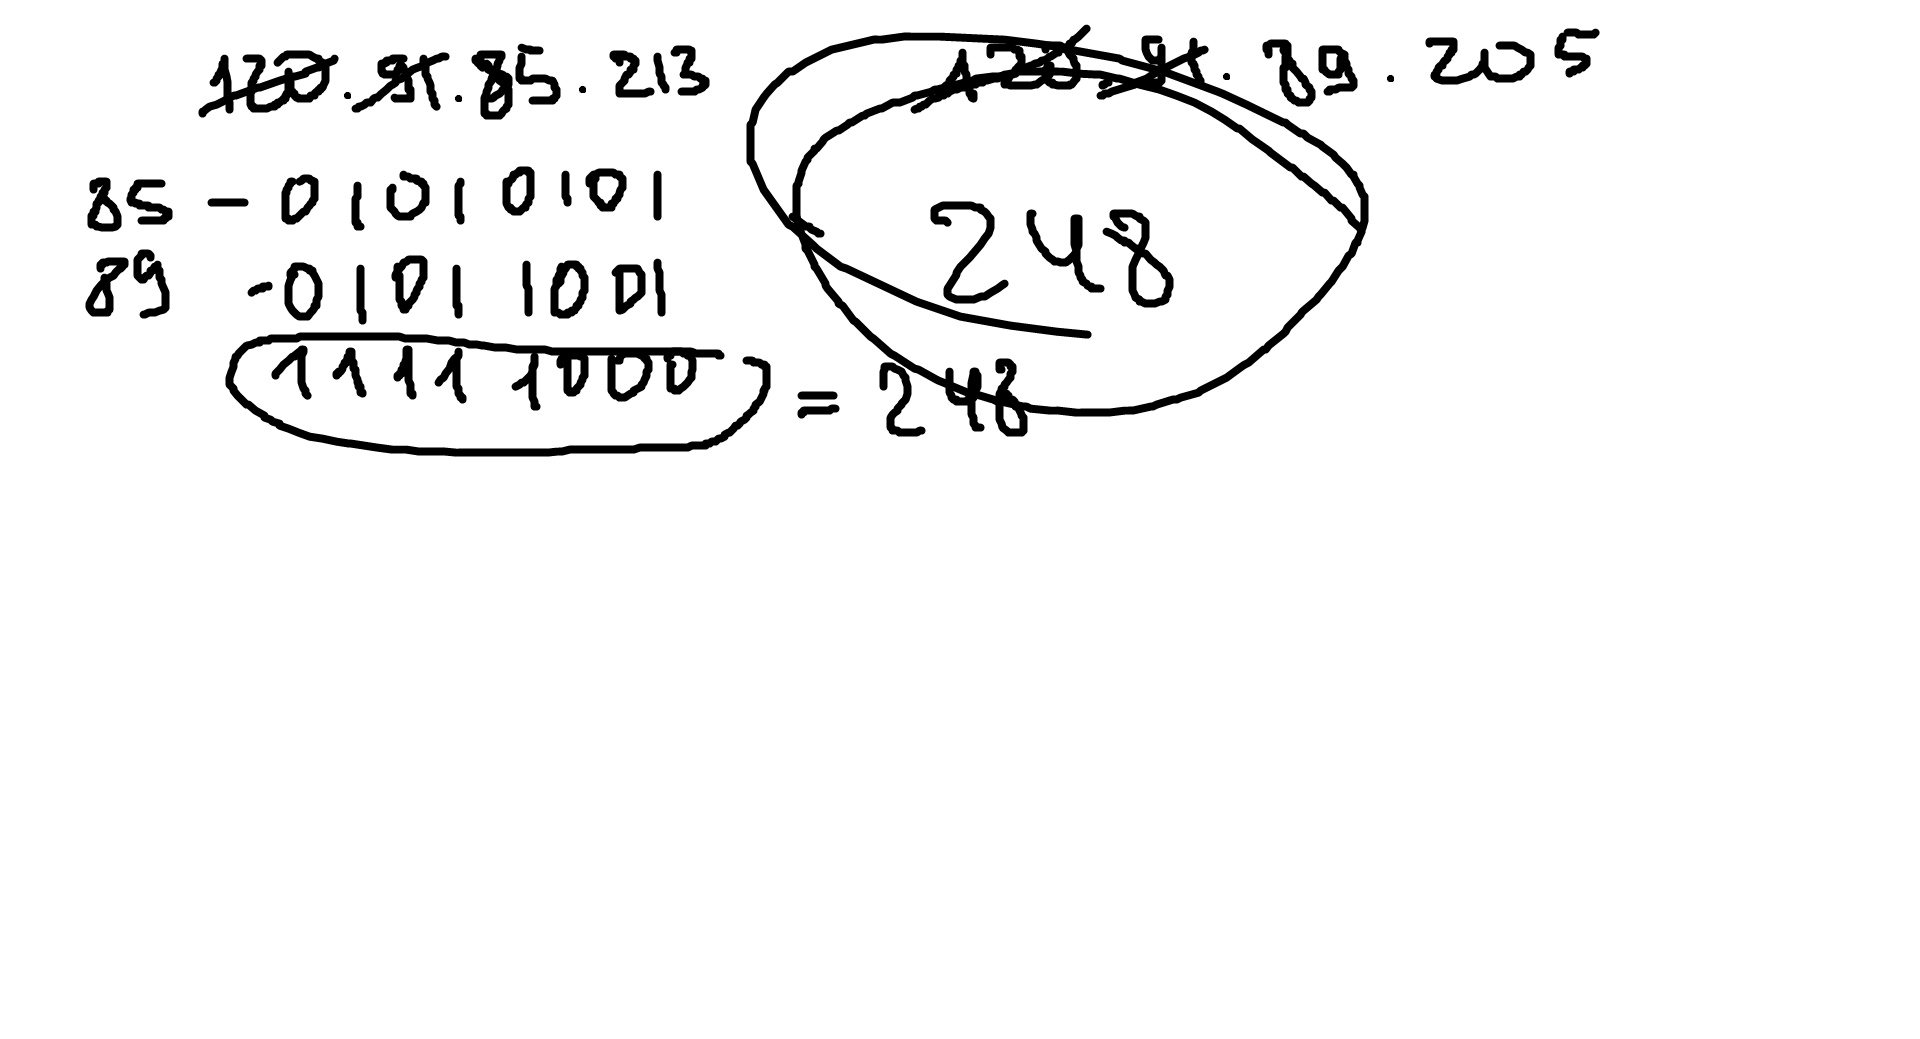 120.91.85.213
120.91.89.205
85 - 01010101
248
89 - 01011001
11111000 = 248